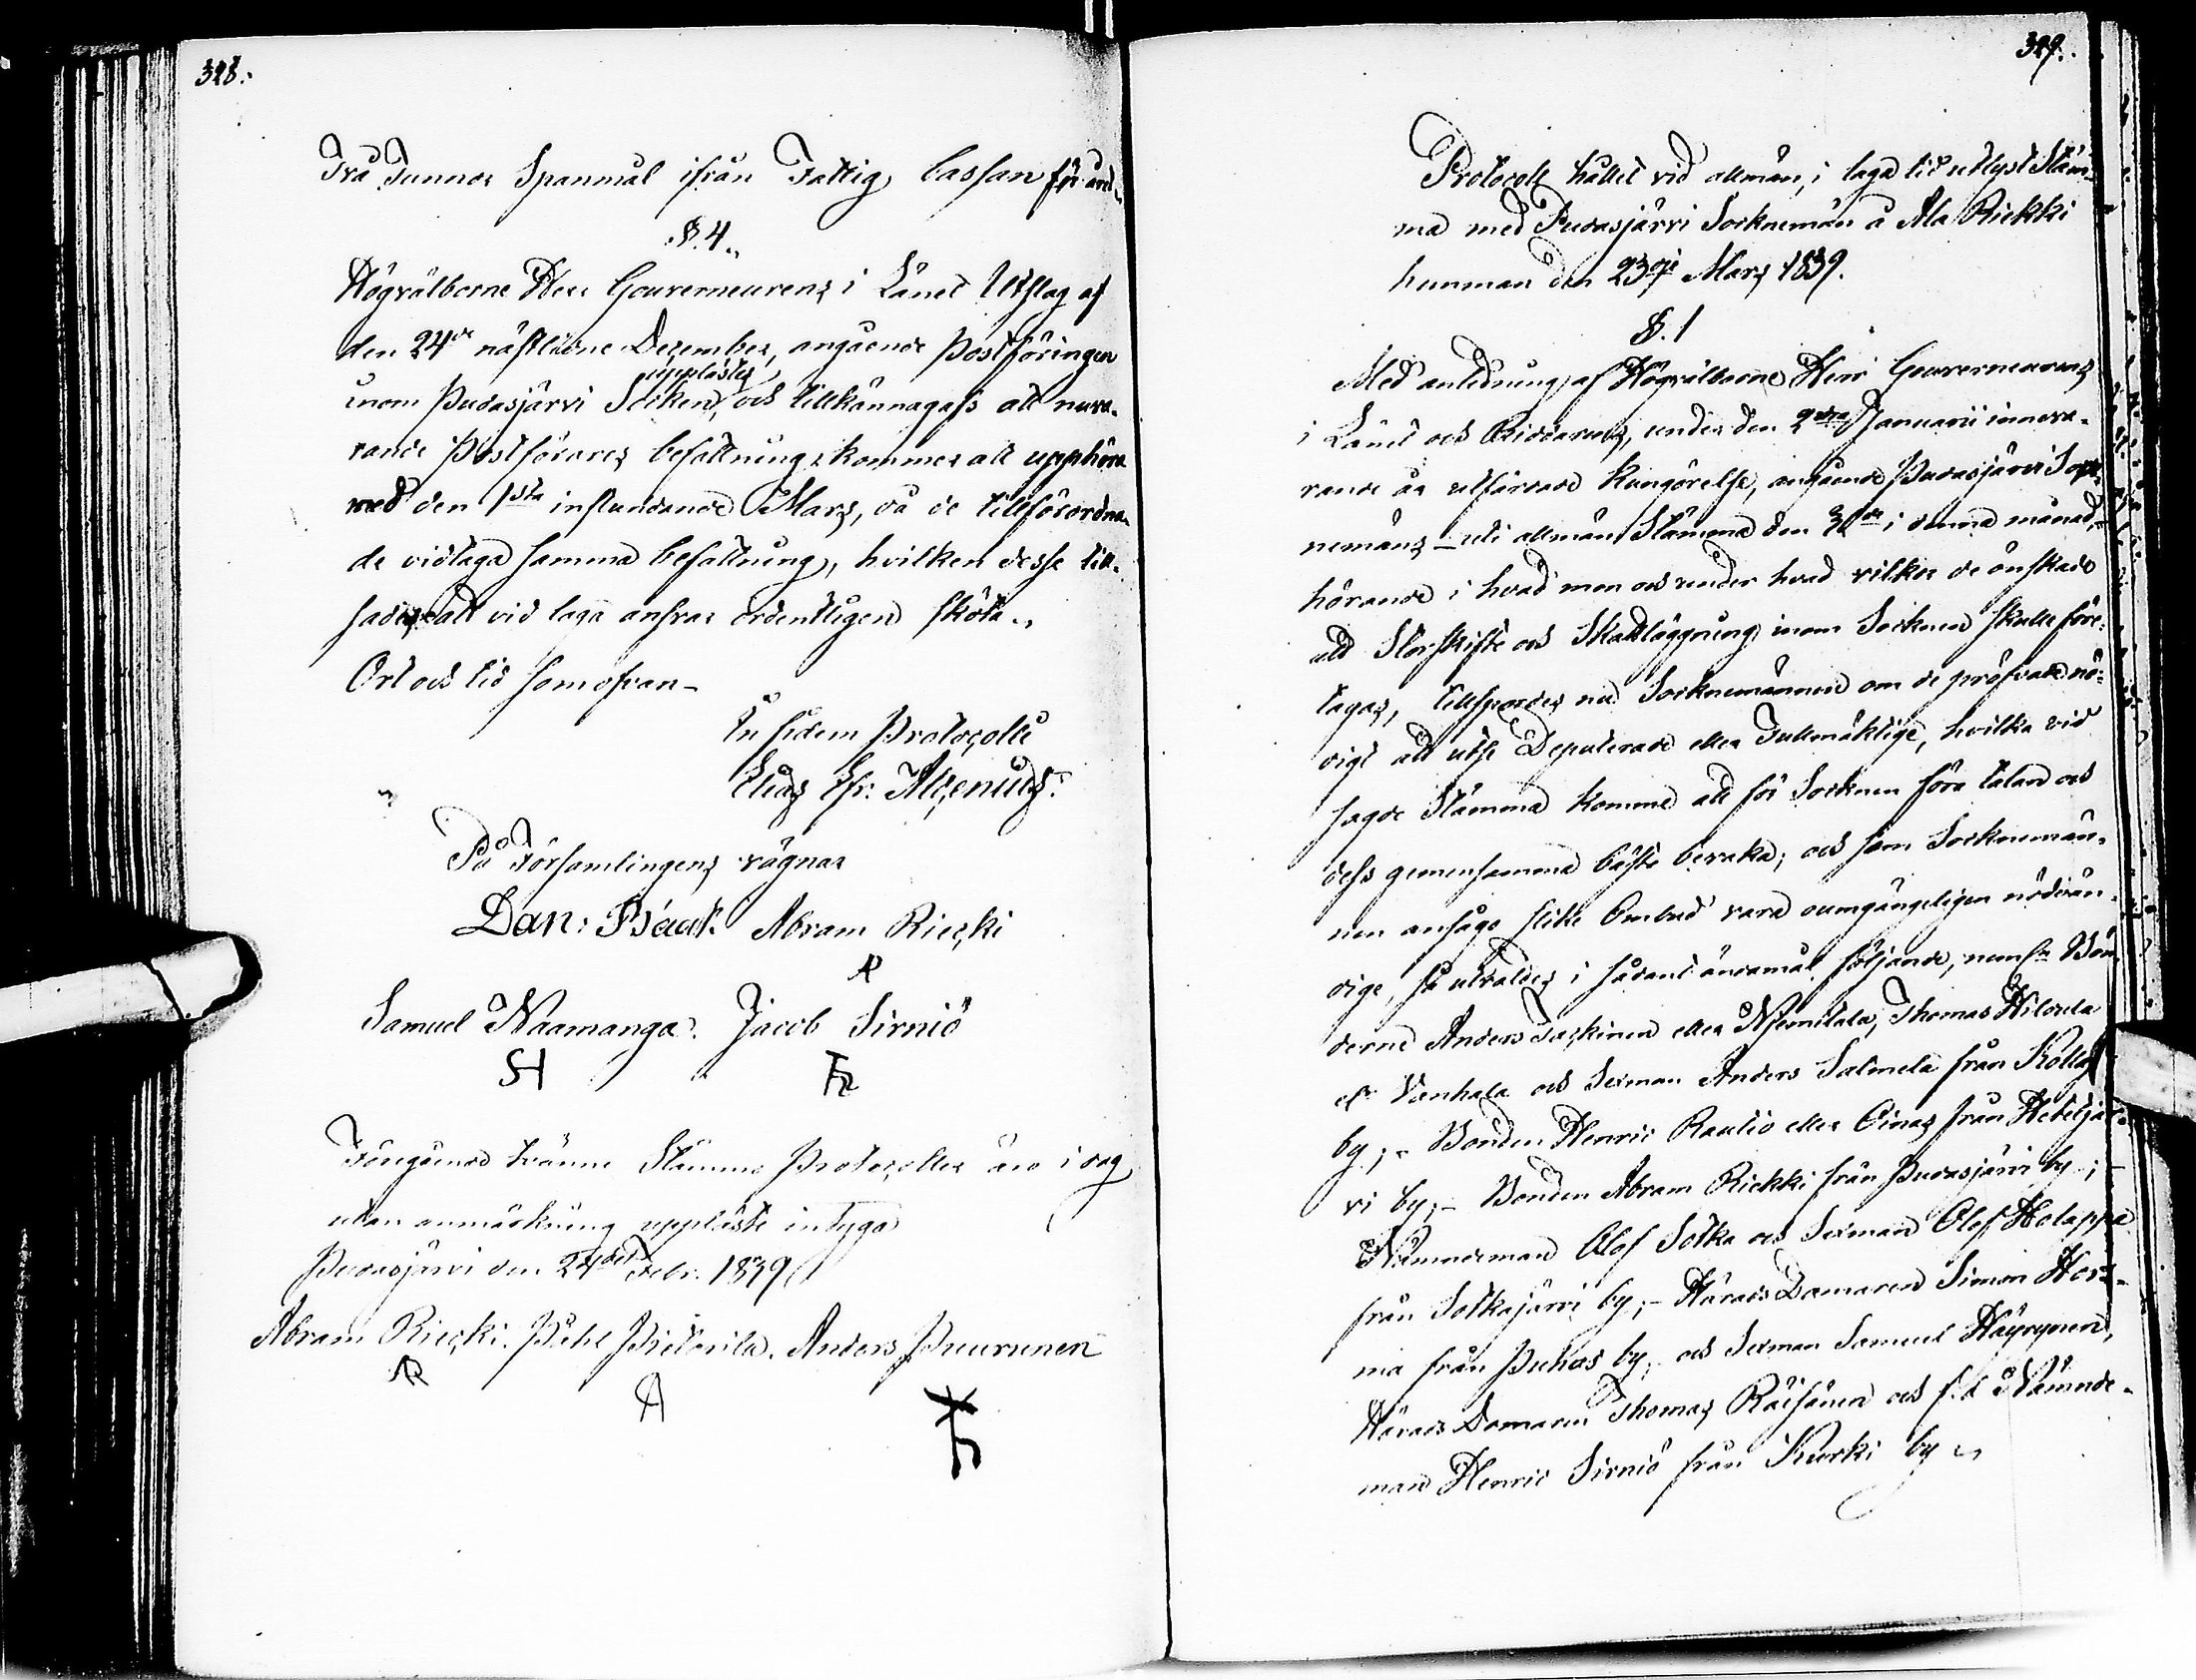 328.
Två Tunnor Spanmål ifrån Fattig Cassan för året
§. 4.
Högvälborne Herr Gouverneurens i Länet Utslag af
den 24de nästledne December, angående Postföringen
inom Pudasjärvi Socken, upplästes och tillkännagafs att nuva-
rande Postförares befattning kommer att upphöra
med den 1sta instundande Mars, då de tillförordna-
de vidtaga samma befattning, hvilken desse till-
sades att vid laga ansvar ordentligen sköta.
Ort och tid som ofvan
In fidem Protocolli
Elias Efr: Alcenius
På Församlingens vägnar
Dan: Bäck Abram Riecki
AR
Samuel Naamanga. Jacob Sirniö
Föregående tvänne Stämmo Protocoller äro i dag
utan anmärkning uppläste intyga
Pudasjärvi den 24de Febr. 1839
Abram Riecki. Påhl Pietarila. Anders Puurunen
AR
329.
Protocoll hållet vid allmän, i laga tid utlyst Stäm-
ma med Pudasjärvi Socknemän å Ala Riekki
hemman den 23dje Mars 1839.
§. 1
Med anledning af Högvälborne Herr Gouverneurens
i Länet och Riddarens, under den 2dra Januarii inneva-
rande år utfärdade Kungörelse, angående Pudasjärvi Sock-
nemäns uti allmän Stämma den 30de i denna månad,
hörande i hvad mon och under hvad vilkor de önskade
att Storskifte och Skattläggning inom Socknen skulle före-
tagas, tillspordes nu Socknemännen om de pröfvade nö-
digt att utse Deputerade eller Fullmäktige, hvilka vid
sagde Stämma komme att för Socknen föra talan och
dess gemensamma bästa bevaka; och som Socknemän-
nen ansågo slike Ombud vara oumgängeligen nödvän-
dige, så utvaldes i sådant ändamål följande, neml:n Bön-
derne Anders Jaskinen eller Niemitalo, Thomas Hilvela
el:r Vanhala och Sexman Anders Salmela från Kollaja
by; - Bonden Henric Rautio eller Oinas från Hetejär-
vi by; - Bonden Abram Riekki från Pudasjärvi by; -
Nämndeman Olof Sotka och Sexman Olof Holappa
från Sotkajärvi by; - HäradsDomaren Simon Hors-
ma från Puhos by; och Sexman Samuel Häyrynen,
HäradsDomaren Thomas Räisänen och f.d. Nämnde-
man Henric Sirniö från Kurki by